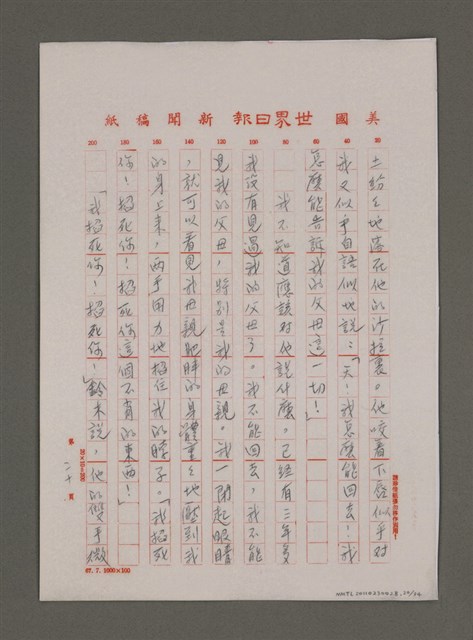 美國世界日報新聞稿紙
200 180 160 140 120 100 80 60 40 20
去給之地落在他的沙拉裏。他咬着下唇似乎對
我又似乎自語似地說:「天!我怎麼能回去!我
怎麼能告訴我的父母這一切!」
我不知道應該對他說什麼。已經有三年多
我沒有見過我的父母了。我不能回去,我不能
見我的父母,特別是我的母親。我一閉起眼睛
,就可以看見我母親肥胖的身體重重地壓到我
的身上來,兩手用力地掐住我的脖子。「我掐死
你!掐死你!掐死你這個不肖的東西!」
「我掐死你!掐死你!」鈴木說,他的雙手微
第 二十 頁
20×10=200
67.7.1000×100